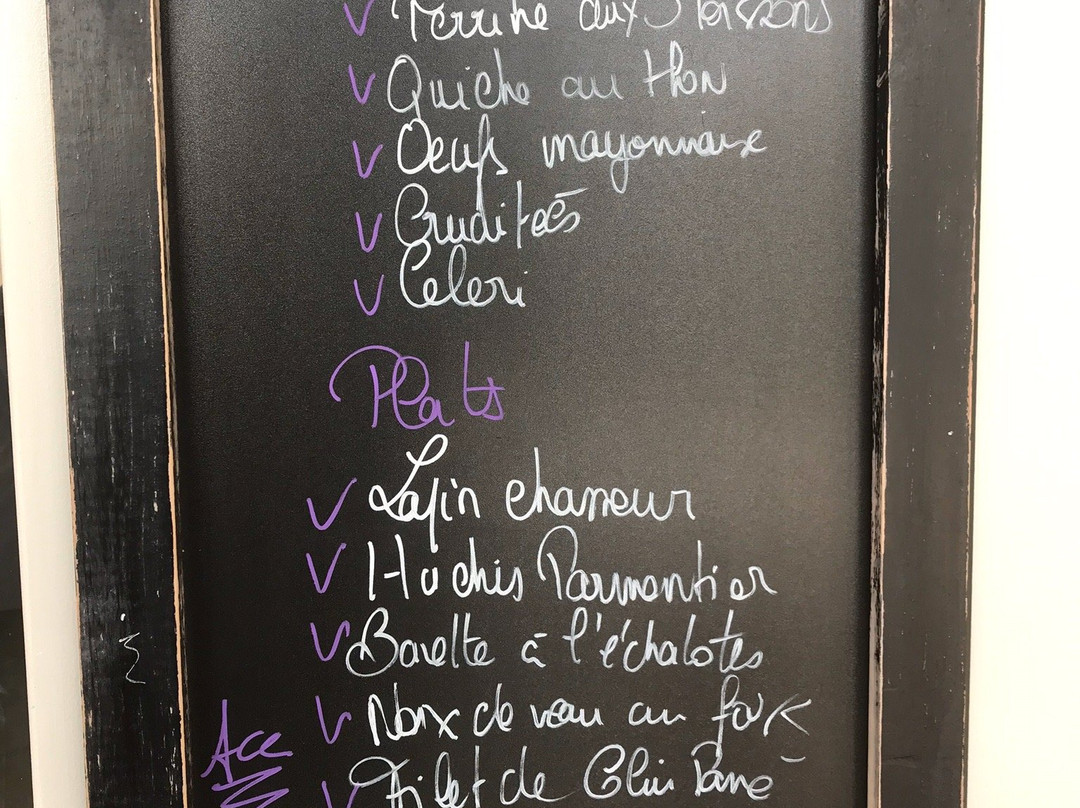 Terrine aux 3 Poissons
Quiche au thon
Oeufs mayonnaise
Cruditeés
Celeri
Plats
Lapin chasseur
Hachis Parmentier
Bavette à l'échalotes
Noix de veau au four
Acc
Filet de Colin Pané